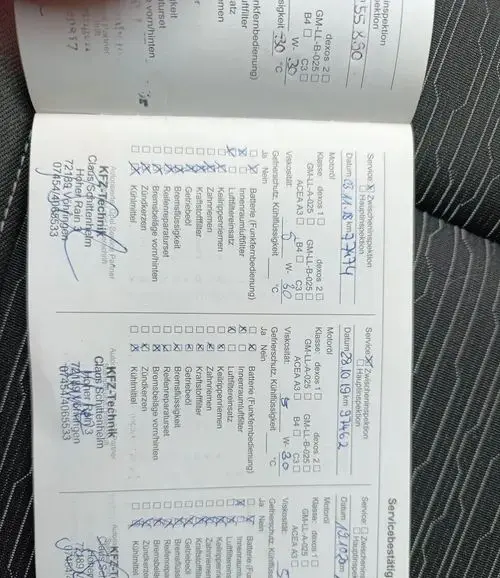 zinspektion
pektion
55890
dexos 2 ☐
GM-LL-B-025 ☐
B4 ☐ C3 ☐
W- 30
sigkeit -30 °C
nkfernbedienung)
uftfilter
satz
nriemen
igkeit
raturset
e vorn/hinten
Service ☒ Zwischeninspektion
☐ Hauptinspektion
Datum
Motoröl
Klasse dexos 1 ☐ dexos 2 ☐
GM-LL-A-025 ☐ GM-LL-B-025 ☐
ACEA A3 ☐ B4 ☐ C3 ☐
Viskosität: 5 W- 30
Gefrierschutz, Kühlflüssigkeit °C
Ja Nein
Batterie (Funkfernbedienung)
Innenraumluftfilter
Luftfiltereinsatz
Keilrippenriemen
Zahnriemen
Kraftstofffilter
Getriebeöl
Bremsflüssigkeit
Reifenreparaturset
Bremsbeläge vorn/hinten
Zündkerzen
Kühlmittel
Partner
KFZ-Technik
Claus Schittenhelm
Hoher Rain 3
72189 Vöhringen
07454/4065533
Service ☒ Zwischeninspektion
☐ Hauptinspektion
Datum 23.10.19 km 97462
Motoröl
Klasse: dexos 1 ☐ dexos 2 ☐
GM-LL-A-025 ☐ GM-LL-B-025 ☐
ACEA A3 ☐ B4 ☐ C3 ☐
Viskosität: 5 W- 30
Gefrierschutz, Kühlflüssigkeit °C
Ja Nein
Batterie (Funkfernbedienung)
Innenraumluftfilter
Luftfiltereinsatz
Keilrippenriemen
Zahnriemen
Kraftstofffilter
Getriebeöl
Bremsflüssigkeit
Reifenreparaturset
Bremsbeläge vorn/hinten
Zündkerzen
Kühlmittel
KFZ-Technik
Claus Schittenhelm
Hoher Rain 3
72189 Vöhringen
07454/4065533
Servicebestätig
Service: ☐ Zwischenins
☐ Hauptinspe
Datum
Motoröl
Klasse: dexos 1 ☐
GM-LL-A-025 ☐
ACEA A3 ☐
Viskosität: 5
Gefrierschutz, Kühlflüssigk
Ja Nein
Batterie (Fu
Innenrauml
Luftfilterein
Keilrippenri
Zahnriemen
Kraftstofffil
Getriebeöl
Bremsflüss
Reifenrepa
Bremsbelä
Zündkerzen
Kühlmittel
KFZ-T